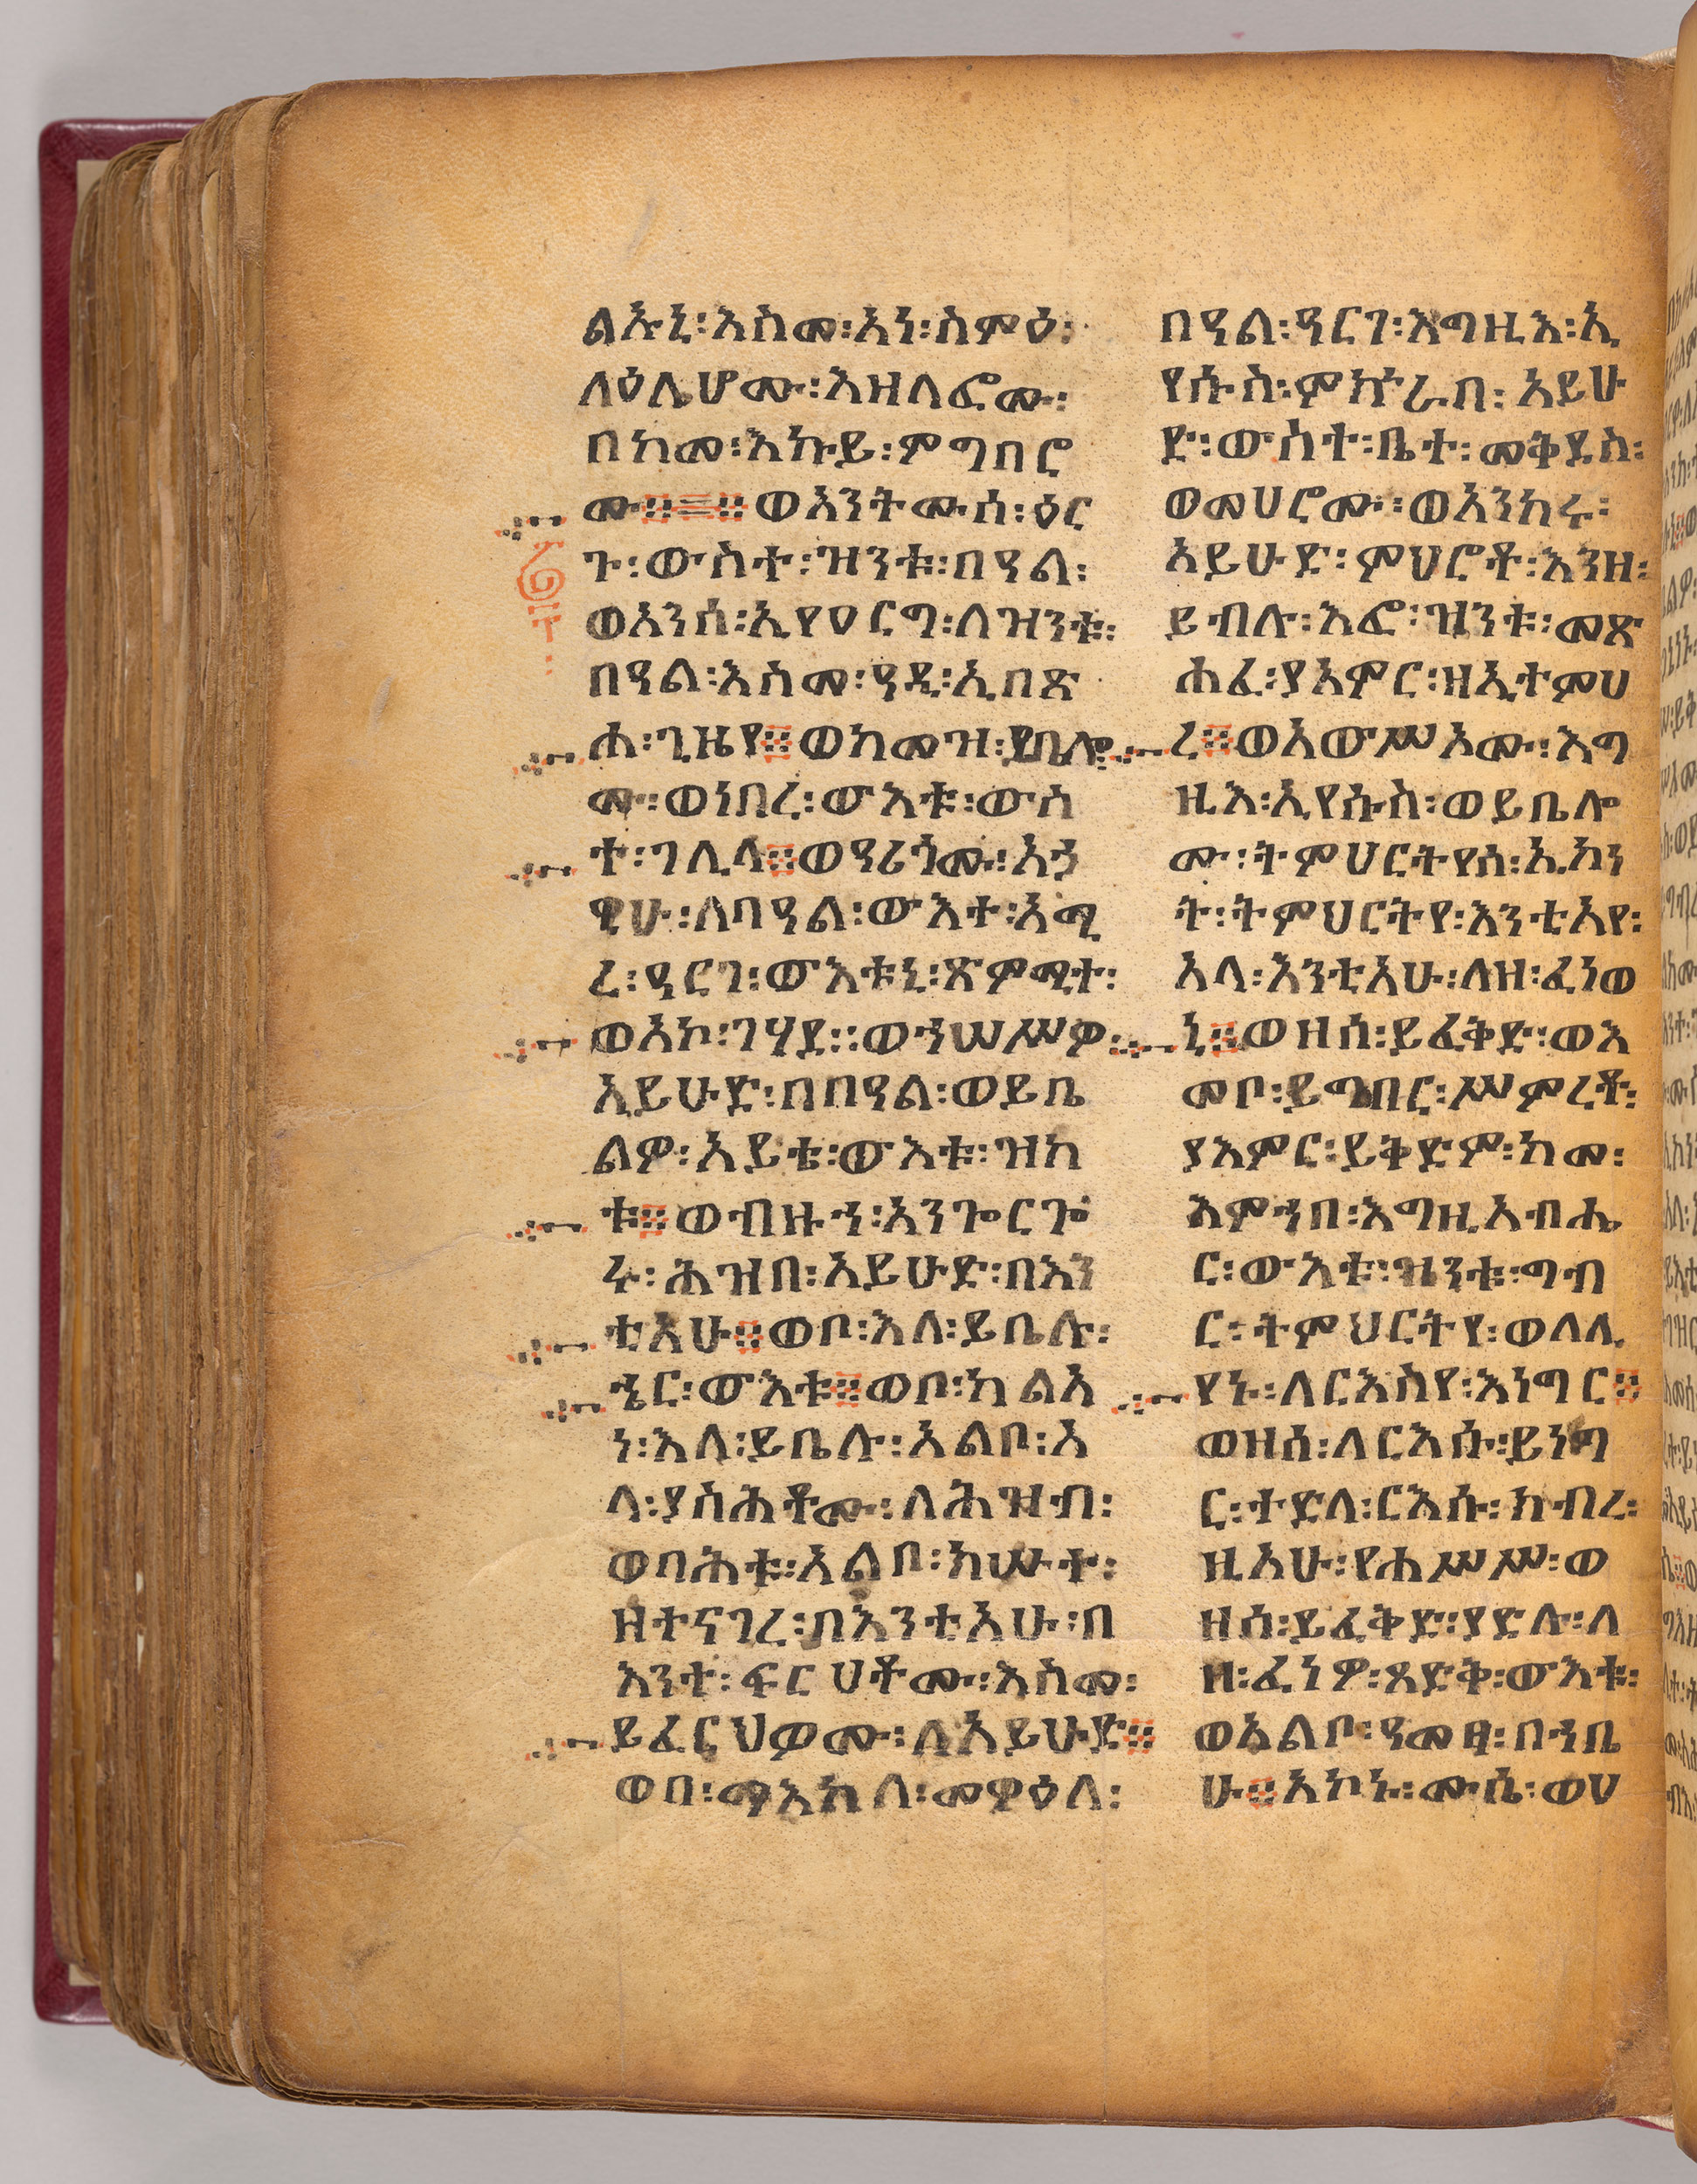 ልኡኒ፡እስመ፡አነ፡ስምዕ፡
ለዕሌሆሙ፡እዘላፎሙ፡
በከመ፡እኩይ፡ምግበሮ
ሙ፡፡=፡፡ወአንትሙሰ፡ዕር
ጉ፡ውስተ፡ዝንቱ፡በዓል፡
ወአንሰ፡ኢየዐርግ፡ለዝንቱ፡
በዓል፡እስመ፡ዓዲ፡ኢበጽ
ሐ፡ጊዜየ፨ወከመዝ፡ይቤሎ
ሙ፡ወነበረ፡ውእቱ፡ውስ
ተ፡ገሊላ፨ወዓሪጎሙ፡አኃ
ዊሁ፡ለባዓል፡ውእተ፡አሚ
ረ፡ዓርገ፡ውእቱኒ፡ጽምሚተ፡
ወአኮ፡ገሃደ፡፡ወኀሠሥዎ፡
አይሁድ፡በበዓል፡ወይቤ
ልዎ፡አይቴ፡ውእቱ፡ዝከ
ቱ፨ወብዙኀ፡አንጐርጐ
ሩ፡ሕዝበ፡አይሁድ፡በእን
ቲአሁ፨ወቦ፡እለ፡ይቤሉ፡
ኄር፡ውእቱ፨ወቦ፡ካልአ
ነ፡እለ፡ይቤሉ፡አልቦ፡አ
ላ፡ያስሕቶሙ፡ለሕዝብ፡
ወባሕቱ፡አልቦ፡ክሡተ፡
ዘተናገረ፡በእንቲአሁ፡በ
እንተ፡ፍርሀቶሙ፡እስመ፡
ይፈርህዎሙ፡ለአይሁድ፨
ወበ፡ማእከለ፡መዋዕለ፡
በዓል፡ዓርገ፡እግዚእ፡ኢ
የሱስ፡ምኵራበ፡አይሁ
ድ፡ውስተ፡ቤተ፡መቅደስ፡
ወመሀሮሙ፡ወአንከሩ፡
አይሁድ፡ምህሮቶ፡እንዘ፡
ይብሉ፡እፎ፡ዝንቱ፡መጽ
ሐፈ፡ያአምር፡ዘኢተምህ
ረ፨ወአውሥአሙ፡እግ
ዚእ፡ኢየሱስ፡ወይቤሎ
ሙ፡ትምህርትየሰ፡ኢኮነ
ት፡ትምህርትየ፡እንቲአየ፡
አላ፡እንቲአሁ፡ለዘ፡ፈነወ
ኒ፨ወዘሰ፡ይፈቅድ፡ወእ
መቦ፡ይግበር፡ሥምረቶ፡
ያአምር፡ይቅድም፡ከመ፡
እምኀበ፡እግዚአብሔ
ር፡ውእቱ፡ዝንቱ፡ግብ
ር፡ትምህርትየ፡ወለሊ
የኑ፡ለርእስየ፡እነግር፨
ወዘሰ፡ለርእሱ፡ይነግ
ር፡ተድላ፡ርእሱ፡ክብረ፡
ዚአሁ፡የሐሥሥ፡ወ
ዘሰ፡ይፈቅድ፡ያድሉ፡ለ
ዘ፡ፈነዎ፡ጻድቅ፡ውእቱ፡
ወአልቦ፡ዓመፃ፡በኀቤ
ሁ፨አኮኑ፡ሙሴ፡ወሀ